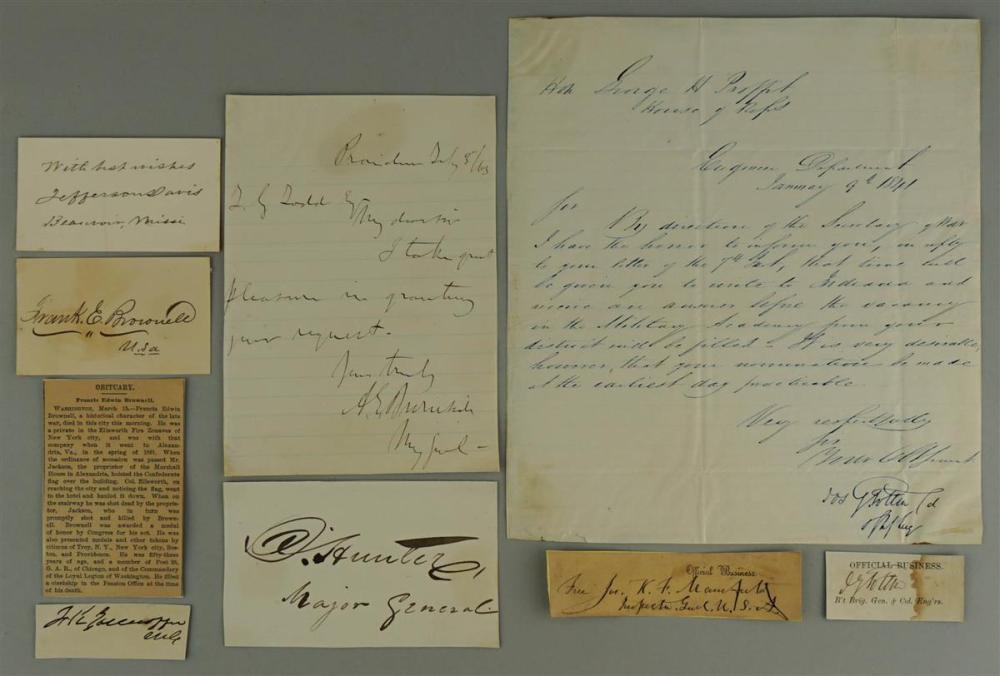 With best wishes
Jefferson Davis
Beauvoir, Missi
Frank. E. Brownell
U.S.A
OBITUARY.
Francis Edwin Brownell.
WASHINGTON, March 15.—Francis Edwin
Brownell, a historical character of the late
war, died in this city this morning. He was
a private in the Ellsworth Fire Zouaves of
New York city, and was with that
company when it went to Alexan-
dria, Va., in the spring of 1861. When
the ordinance of secession was passed Mr.
Jackson, the proprietor of the Marshall
House in Alexandria, hoisted the Confederate
flag over the building. Col. Ellsworth, on
reaching the city and noticing the flag, went
to the hotel and hauled it down. When on
the stairway he was shot dead by the proprie-
tor, Jackson, who in turn was
promptly shot and killed by Brown-
ell. Brownell was awarded a medal
of honor by Congress for his act. He was
also presented medals and other tokens by
citizens of Troy, N. Y., New York city, Bos-
ton, and Providence. He was fifty-three
years of age, and a member of Post 28,
G. A. R., of Chicago, and of the Commandery
of the Loyal Legion of Washington. He filled
a clerkship in the Pension Office at the time
of his death.
Providence July 8/63
Todd Esq
My dear Sir
I take great
pleasure in granting
your request.
Yours truly
A E Burnside
Maj Genl
D. Hunter,
Major General
Hon George H Proffit
House of Reps
Engineer Department
January 9th 1841
Sir
By direction of the Secretary of War
I have the honor to inform you, in reply
to your letter of the 7th Inst, that time will
be given you to write to Indiana and
receive an answer before the vacancy
in the Military Academy from your
district will be filled. It is very desirable,
however, that your nomination be made
at the earliest day practicable.
Very respectfully
Sir
Your Obt Servant
Jos G Totten
Official Business.
Jos. K. F. Mansfield
Inspector Genl. U.S.
OFFICIAL BUSINESS.
J G Totten
B't Brig. Gen. & Col. Eng'rs.